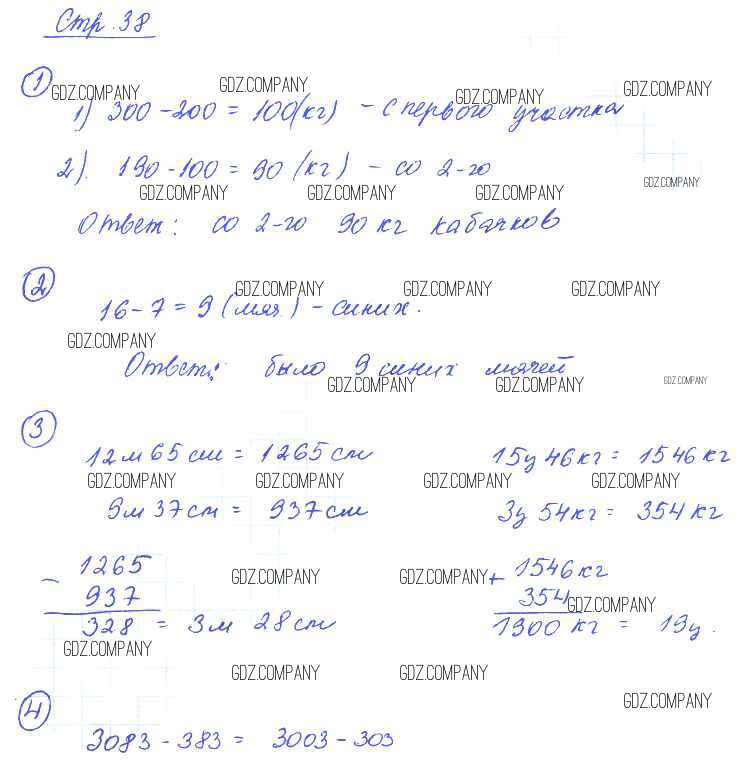 Стр. 38
1
GDZ.COMPANY GDZ.COMPANY GDZ.COMPANY GDZ.COMPANY
1) 300 - 200 = 100 (кг) - с первого участка
2). 190 - 100 = 90 (кг) - со 2-го
GDZ.COMPANY GDZ.COMPANY GDZ.COMPANY GDZ.COMPANY
Ответ: со 2-го 90 кг кабачков
2
GDZ.COMPANY GDZ.COMPANY GDZ.COMPANY
16 - 7 = 9 (мяч.) - синих.
GDZ.COMPANY
Ответ: было 9 синих мячей
GDZ.COMPANY GDZ.COMPANY GDZ.COMPANY
3
12 м 65 см = 1265 см 15 ц 46 кг = 1546 кг
GDZ.COMPANY GDZ.COMPANY GDZ.COMPANY GDZ.COMPANY
9 м 37 см = 937 см 3 ц 54 кг = 354 кг
- 1265 + 1546 кг
GDZ.COMPANY GDZ.COMPANY
937 354
GDZ.COMPANY
328 = 3 м 28 см 1900 кг = 19 ц.
GDZ.COMPANY
GDZ.COMPANY GDZ.COMPANY
GDZ.COMPANY
4
3083 - 383 = 3003 - 303